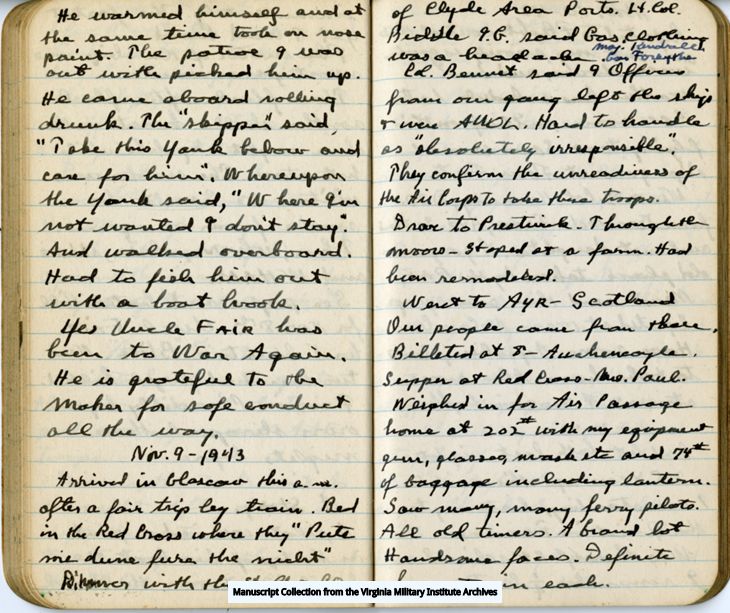 He warmed himself and at
the same time took on nose
paint. The patrol I was
out with picked him up.
He came aboard rolling
drunk. The "skipper" said,
"Take this Yank below and
care for him". Whereupon
the Yank said, "Where I'm
not wanted I don't stay".
And walked overboard.
Had to fish him out
with a boat hook.
Yes Uncle FAIR has
been to War Again.
He is grateful to the
Maker for safe conduct
all the way.
Nov. 9-1943
Arrived in Glascow this a.m.
after a fair trip by train. Bed
in the Red Cross where they "Puts
me dune fura the nicht"
Dinner with the
of Clyde Area Ports. Lt. Col.
Biddle I.G. said Gas clothing
Maj. Kendrall,
was a headache. Gas Forsythe
Col. Bennet said 9 Officers
from our gang left the ships
& were AWOL. Hard to handle
as "absolutely irresponsible".
They confirm the unreadiness of
the Air Corps to take these troops.
Drove to Prestwick. Through the
moors - Stoped at a farm. Had
been remodeled.
Went to AYR - Scotland
Our people came from there.
Billeted at
Supper at Red Cross - Mrs. Paul.
Weighed in for Air Passage
home at 202# with my equipment
gun, glasses, mask etc and 74#
of baggage including lantern.
Saw many, many ferry pilots.
All old timers. A brand lot
Handsome faces. Definite
in each.
Manuscript Collection from the Virginia Military Institute Archives